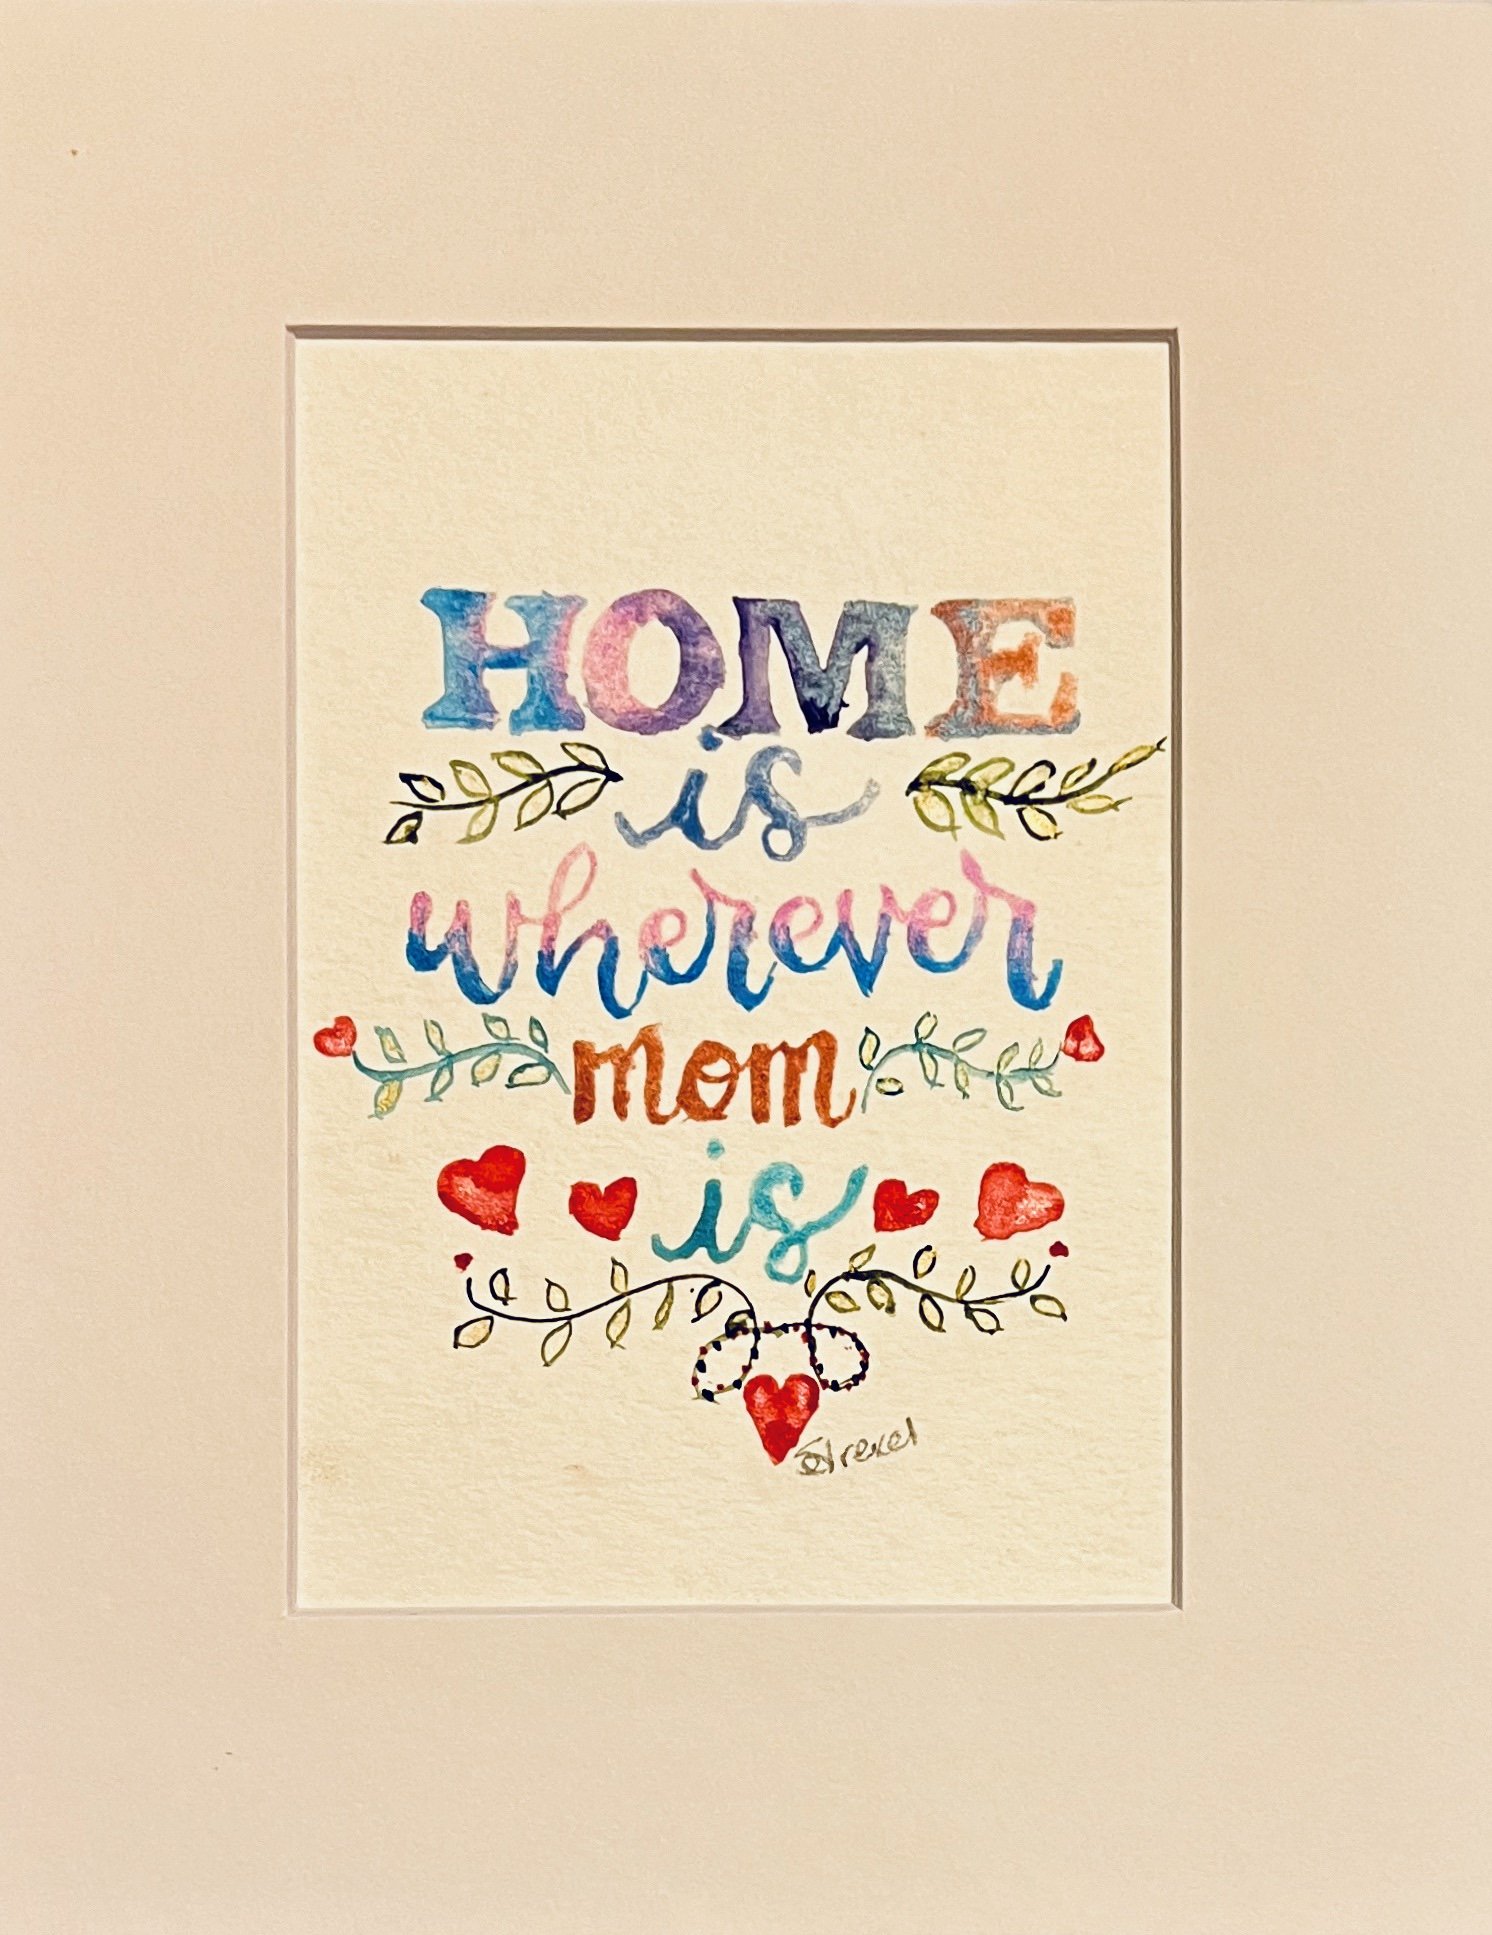 HOME
is
wherever
mom
is